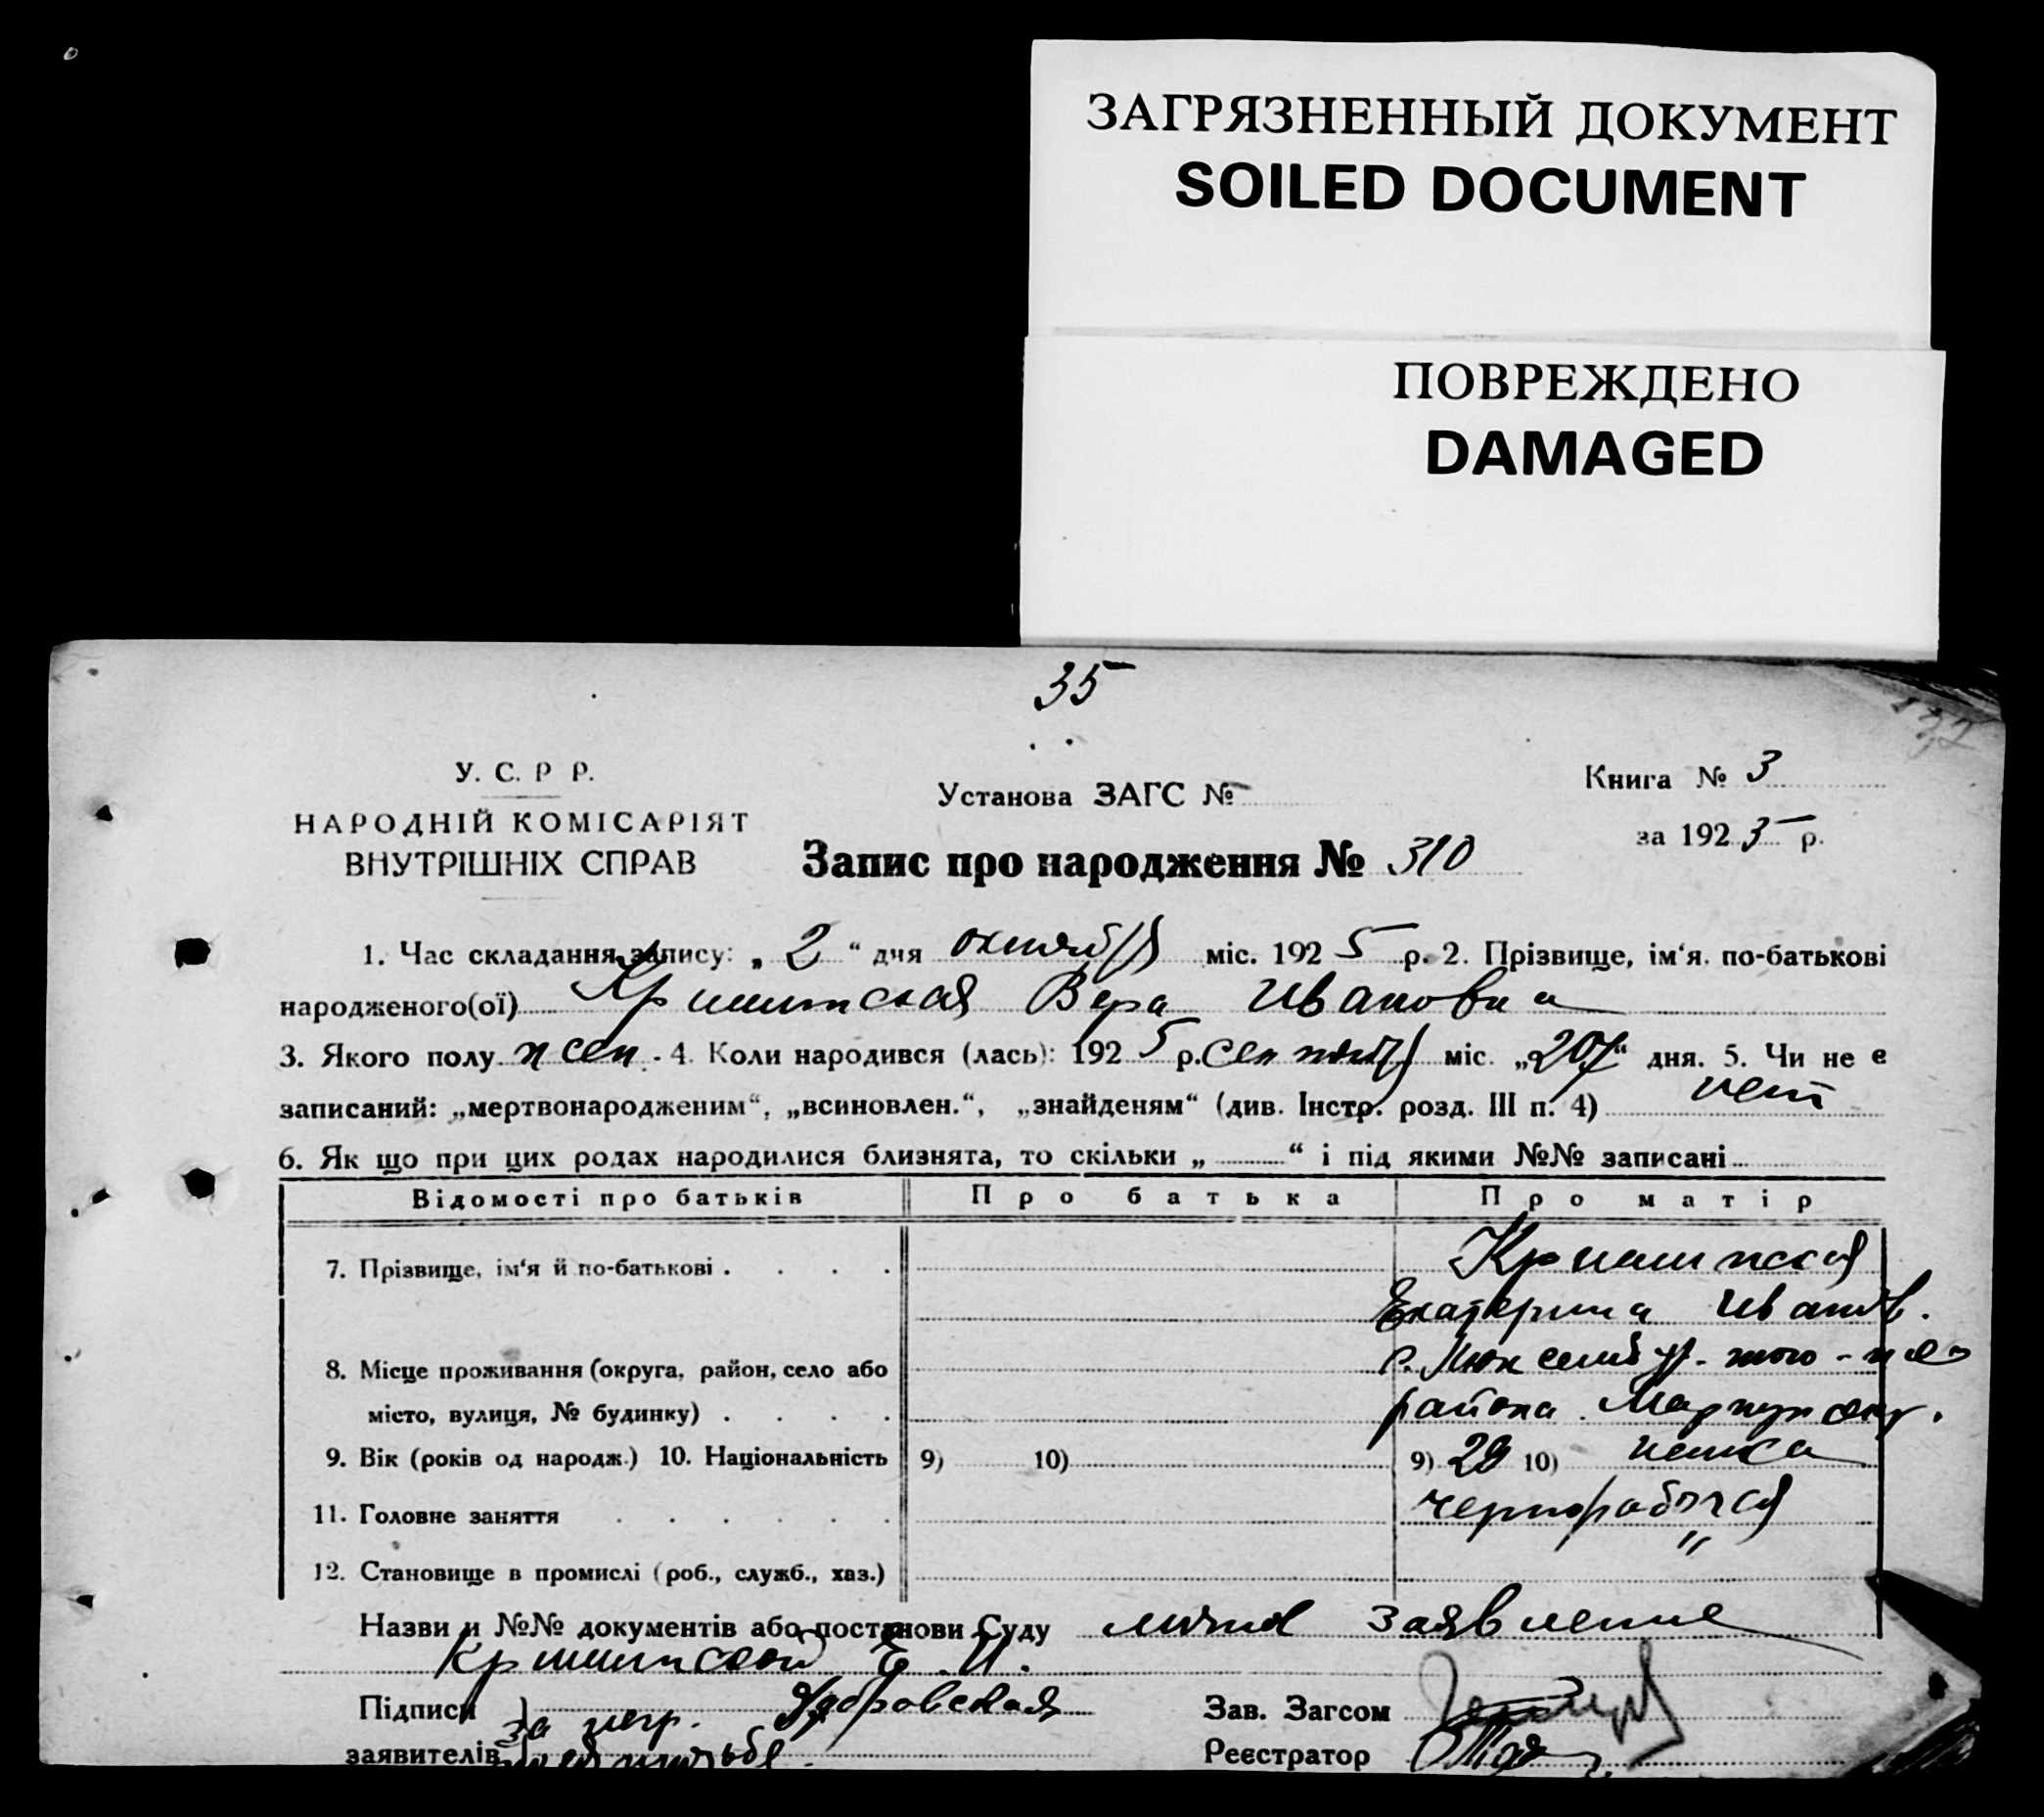 ЗАГРЯЗНЕННЫЙ ДОКУМЕНТ
SOILED DOCUMENT
ПОВРЕЖДЕНО
DAMAGED
35
У. С. Р Р.
НАРОДНІЙ КОМІСАРІЯТ
ВНУТРІШНІХ СПРАВ
Установа ЗАГС №
Книга № 3
за 1925 р.
Запис про народження № 310
1. Час складання запису: „ 2 “ дня октября міс. 1925 р. 2. Прізвище, ім‘я. по-батькові
народженого(ої) Вера Ивановна
3. Якого полу жен. 4. Коли народився (лась): 1925 р. сентября міс. „20“ дня. 5. Чи не є
записаний: „мертвонародженим“, „всиновлен.“, „знайденям“ (див. Інстр. розд. III п. 4) нет
6. Як що при цих родах народилися близнята, то скільки „ “ і під якими №№ записані
Відомості про батьків Про батька Про матір
7. Прізвище, ім‘я й по-батькові . . . .
Екатерина Иванов.
8. Місце проживання (округа, район, село або
місто, вулиця, № будинку) . . . района Мариуп окр.
9. Вік (років од народж.) 10. Національність 9) 10) 9) 29 10) немка
11. Головне заняття . . . . . . чернорабочая
12. Становище в промислі (роб., служб., хаз.)
Назви и №№ документів або постанови Суду личное заявление
Е. И.
Підписи за негр.
заявителів по ея просьбе.
Зав. Загсом
Реєстратор